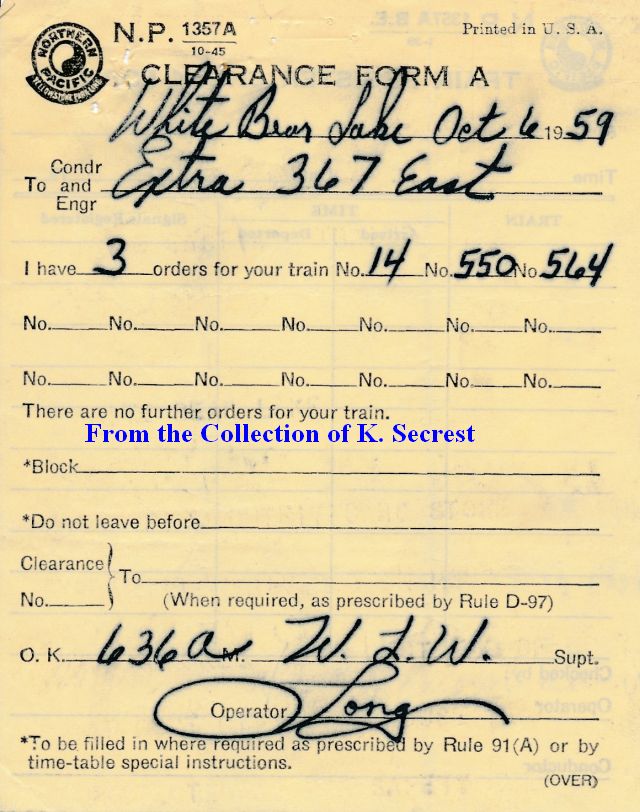 NORTHERN PACIFIC YELLOWSTONE PARK LINE
N.P. 1357A Printed in U. S. A.
10-45
CLEARANCE FORM A
White Bear Lake Oct 6 1959
Condr
To and Extra 367 East
Engr
I have 3 orders for your train No. 14 No. 550 No. 564
No. No. No. No. No. No. No.
No. No. No. No. No. No. No.
There are no further orders for your train.
From the Collection of K. Secrest
*Block
*Do not leave before
Clearance
To
No. (When required, as prescribed by Rule D-97)
O. K. 636 a M. W. L. W. Supt.
Operator Long
*To be filled in where required as prescribed by Rule 91(A) or by
time-table special instructions.
(OVER)